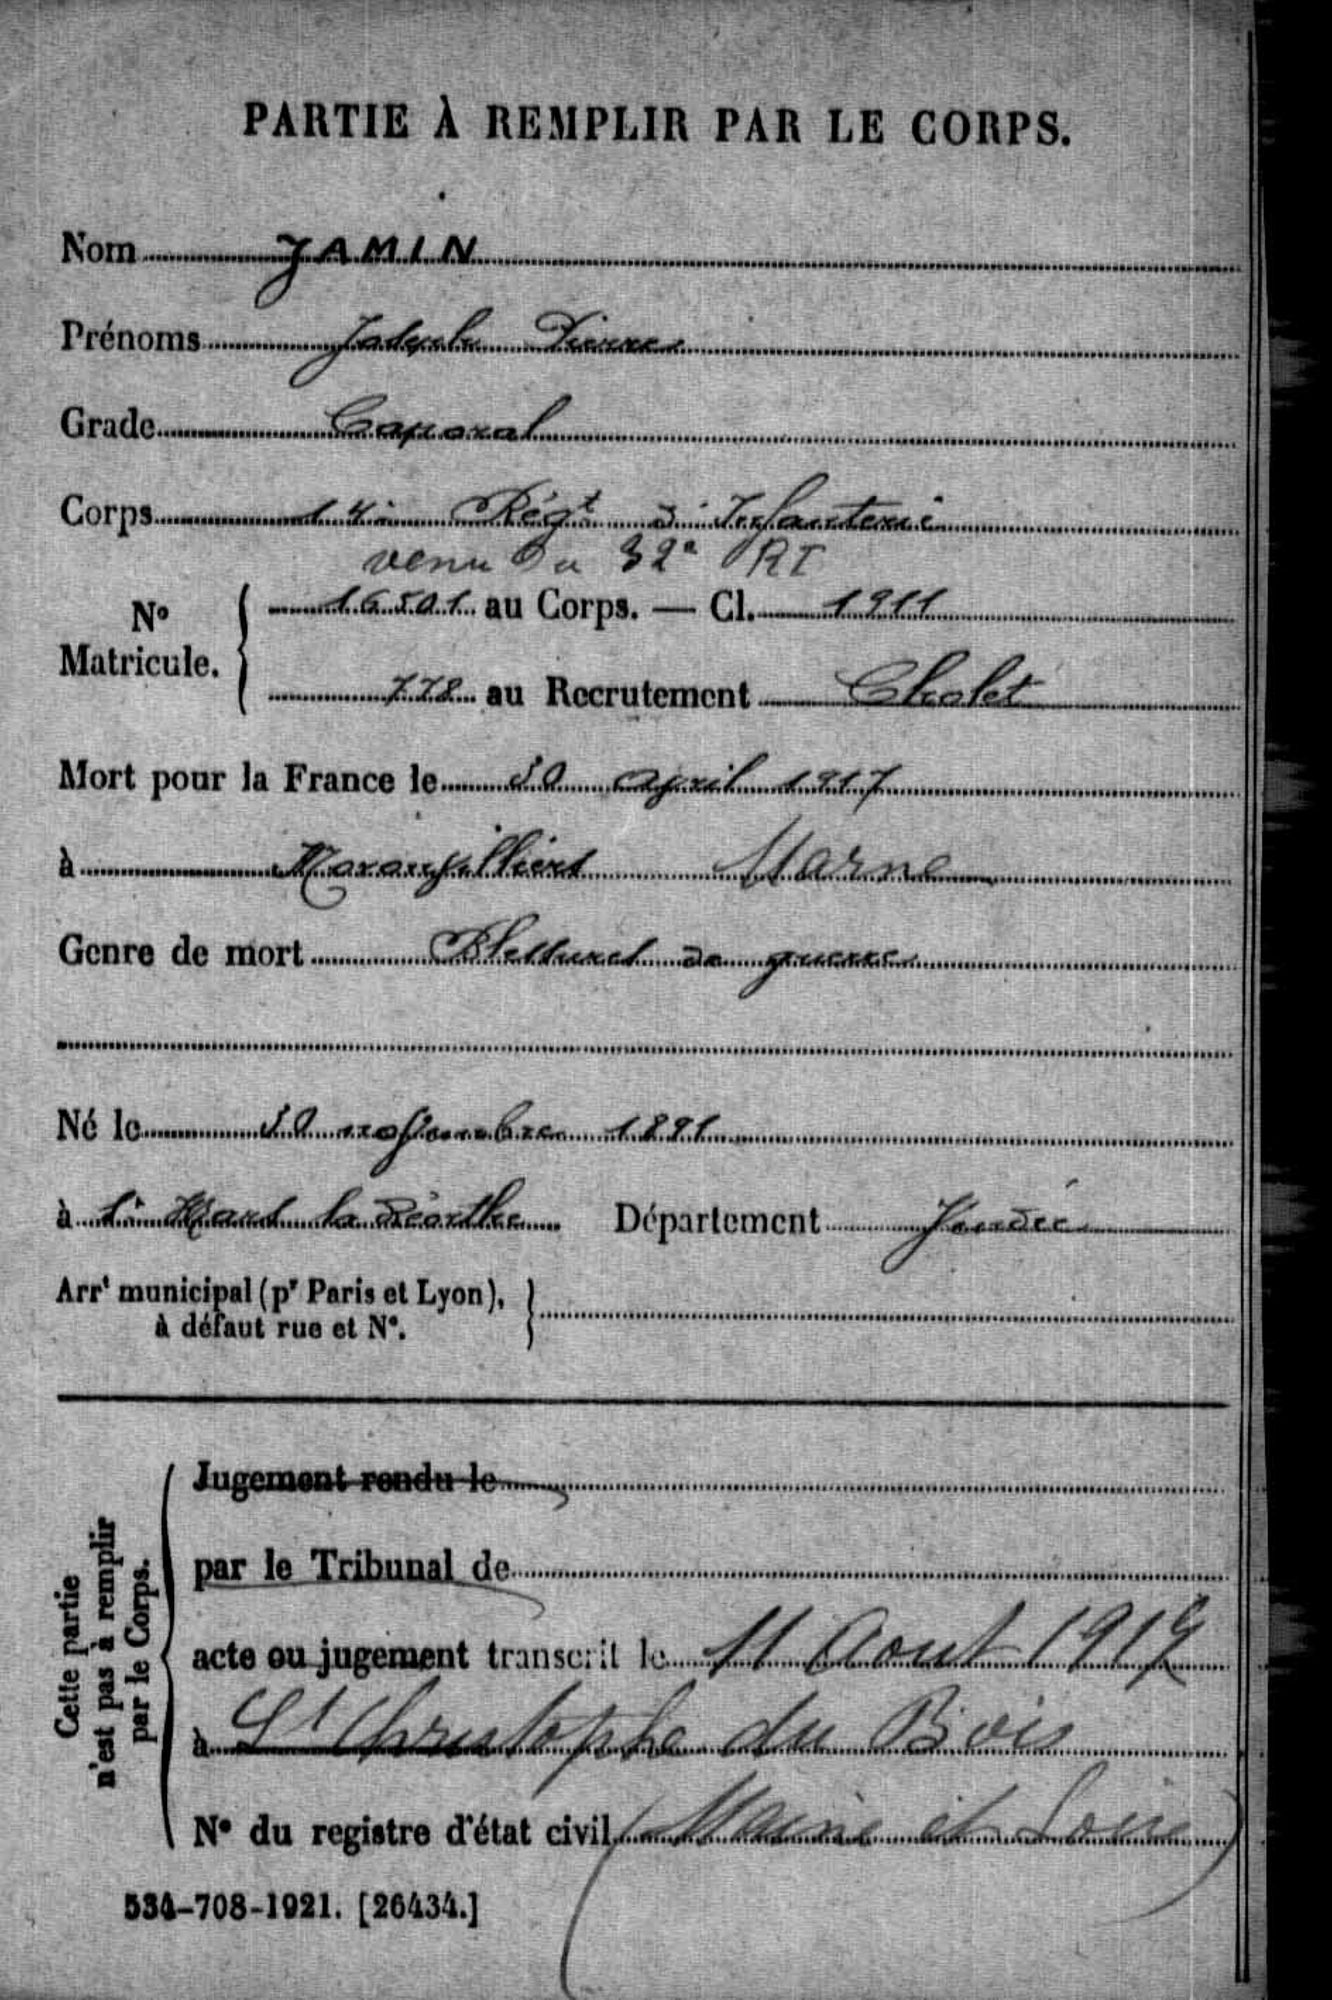 PARTIE À REMPLIR PAR LE CORPS.
Nom JAMIN
Prénoms Pierre
Grade Caporal
Corps 14e Régt d'Infanterie
venu du 32e RI
No Matricule. 16501 au Corps. — Cl. 1911
778 au Recrutement Cholet
Mort pour la France le 30 april 1917
à Maronvilliers Marne
Genre de mort Blessures de guerre
Né le 30 november 1891
à St Mars la Réorthe Département Vendée
Arrt municipal (pr Paris et Lyon),
à défaut rue et No.
Cette partie
n'est pas à remplir
par le Corps.
Jugement rendu le
par le Tribunal de
acte ou jugement transcrit le 11 Aout 1917
à St Christophe du Bois
No du registre d'état civil (Maine et Loire)
534-708-1921. [26434.]